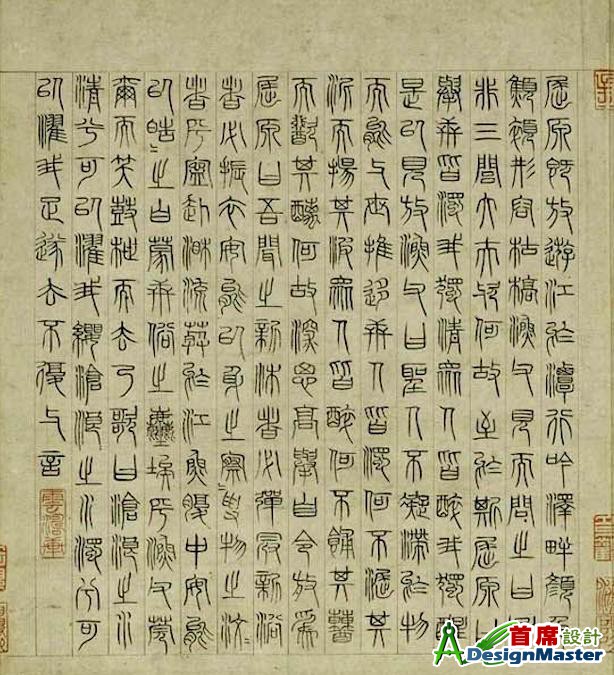 屈原既放遊江於潭行吟澤畔顏色
顦顇形容枯槁漁父見而問之曰子
非三閭大夫與何故至於斯屈原曰
舉世皆濁我獨清眾人皆醉我獨醒
是以見放漁父曰聖人不凝滯於物
而能與世推移世人皆濁何不淈其
泥而揚其波眾人皆醉何不餔其糟
而歠其醨何故深思高舉自令放為
屈原曰吾聞之新沐者必彈冠新浴
者必振衣安能以身之察〻受物之汶〻
者乎寧赴湘流葬於江魚腹中安能
以皓〻之白蒙世俗之塵埃乎漁父莞
爾而笑鼓枻而去乃歌曰滄浪之水
清兮可以濯我纓滄浪之水濁兮可
以濯我足遂去不復與言
首席設計
DesignMaster